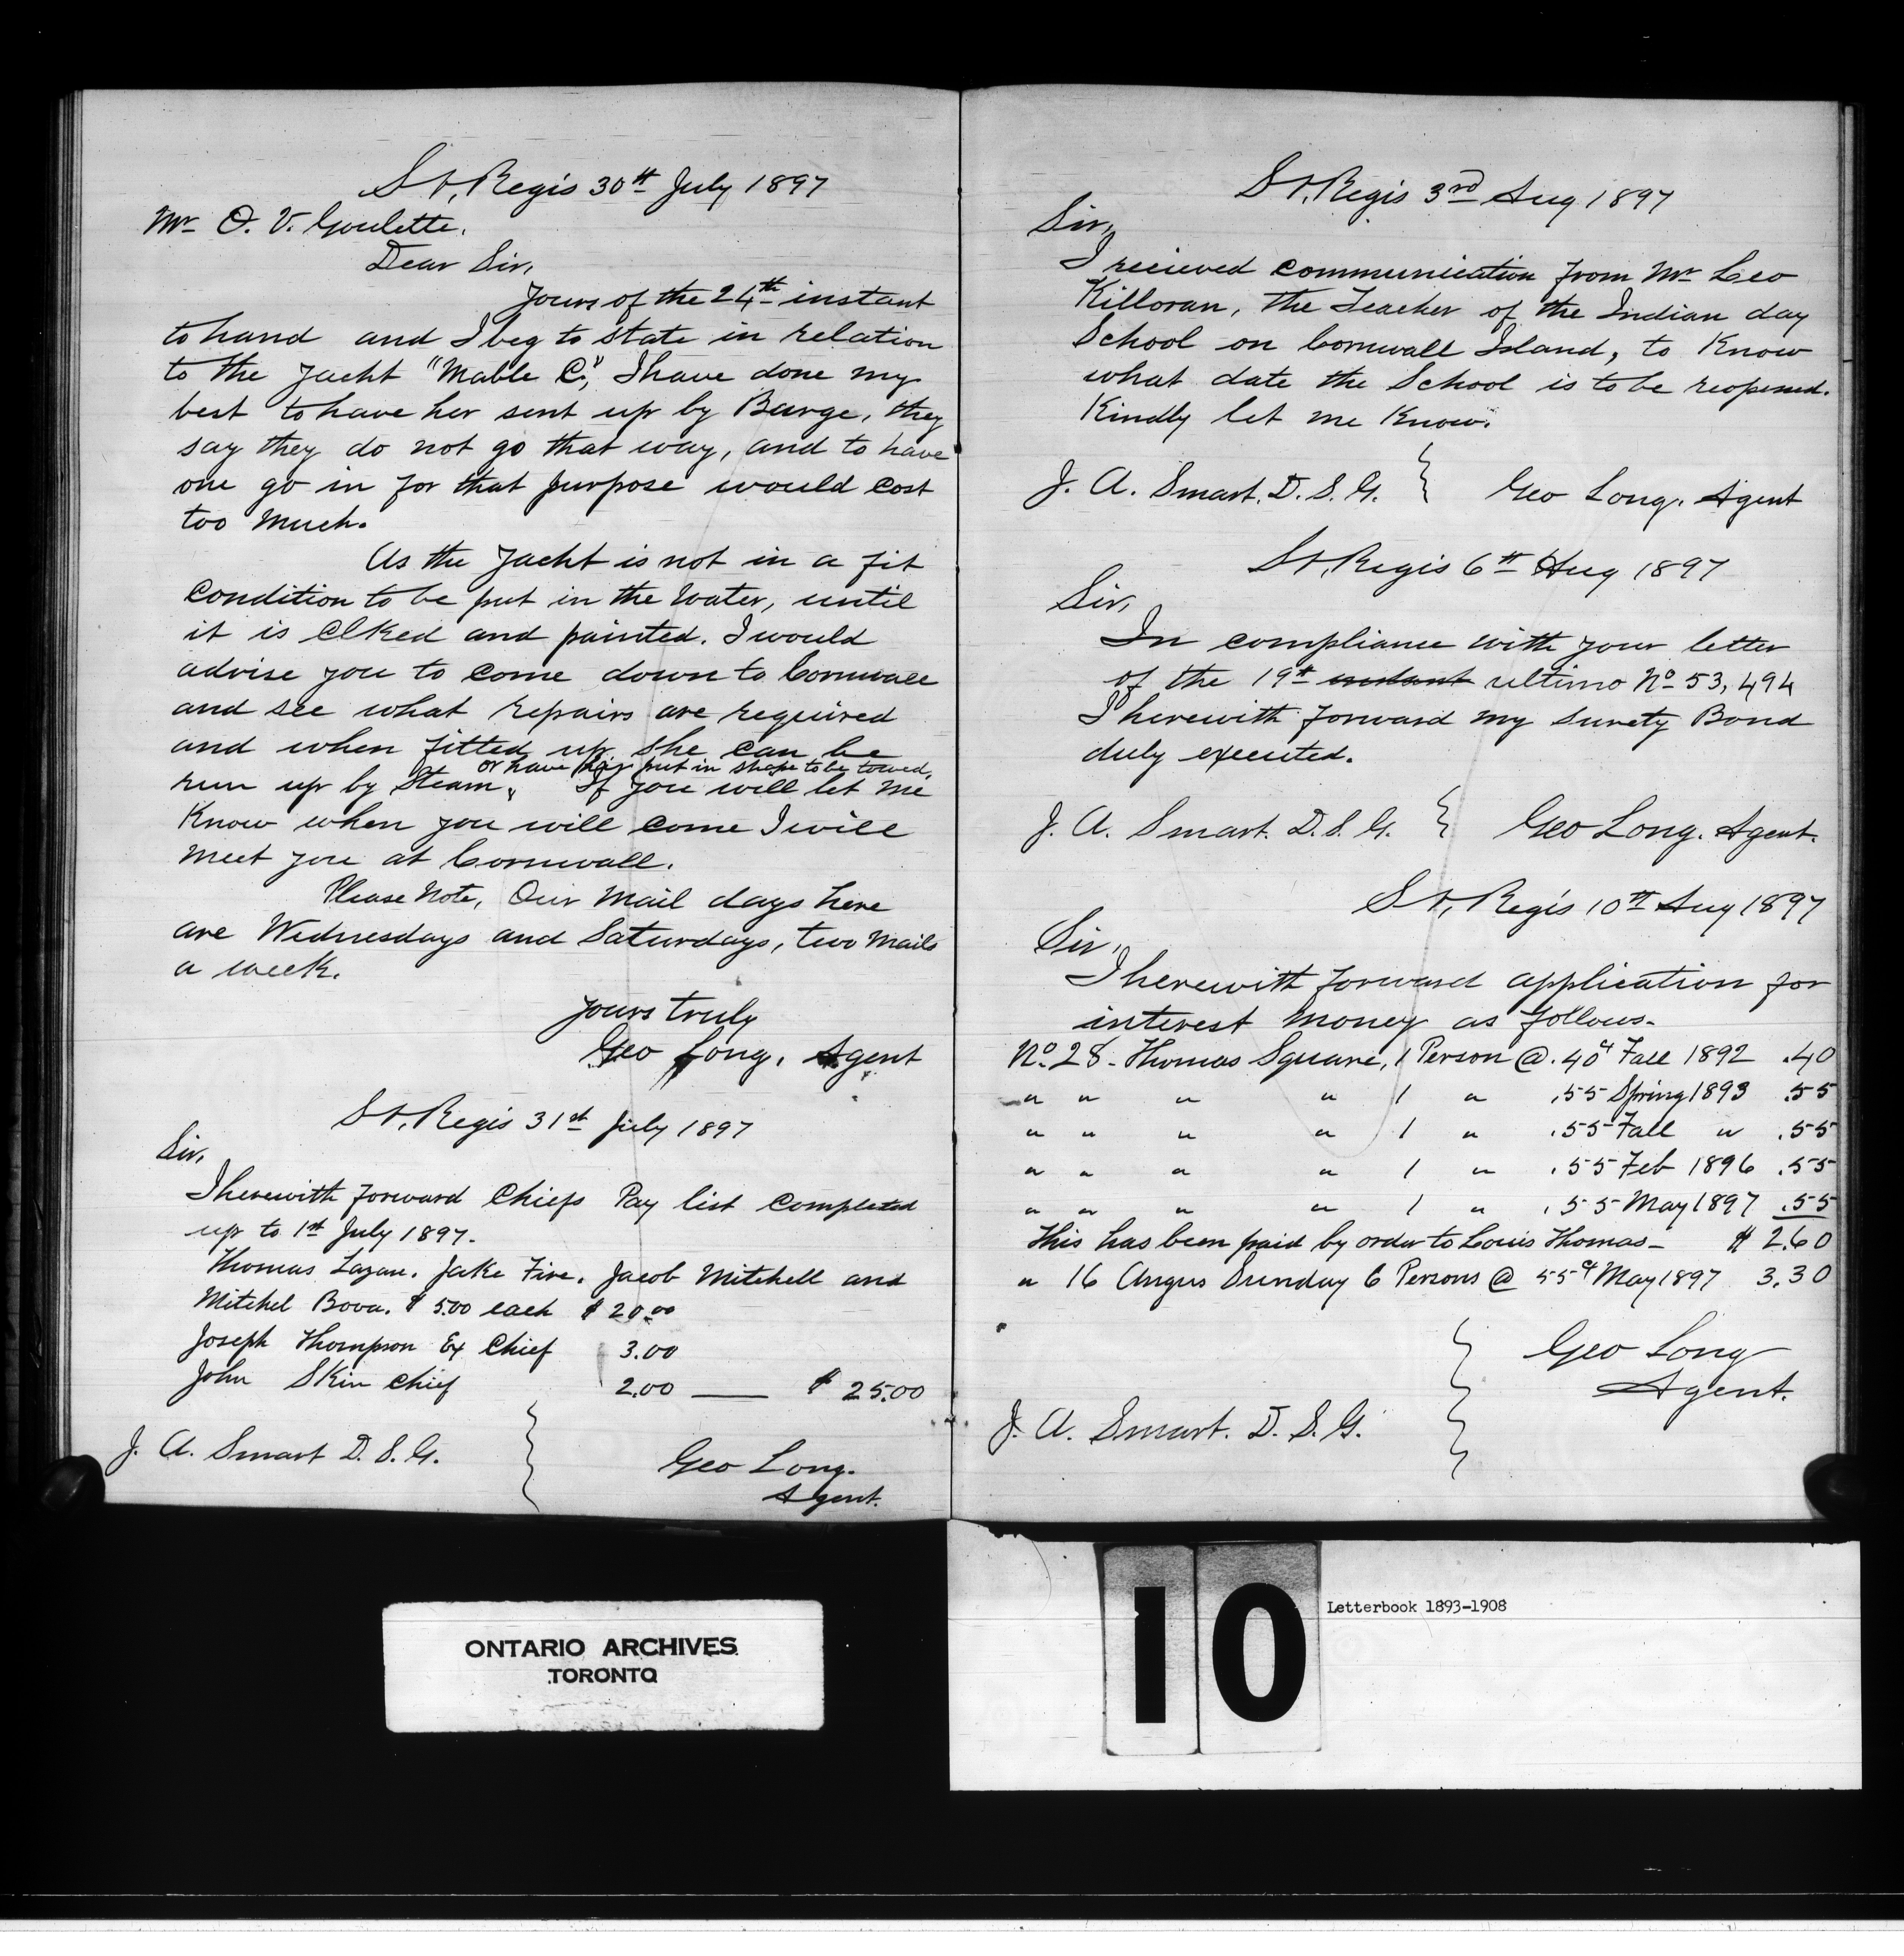 St. Regis 30th July 1897
Mr O. V. Goulette.
Dear Sir,
Yours of the 24th instant
to hand and I beg to state in relation
to the yacht "Mable C.", I have done my
best to have her sent up by Barge, they
say they do not go that way, and to have
one go in for that purpose would cost
too much.
As the yacht is not in a fit
condition to be put in the water, until
it is Clked and painted. I would
advise you to come down to Cornwall
and see what repairs are required
and when fitted up she can be
or have her put in shape to be towed.
run up by Steam, If you will let me
Know when you will come I will
meet you at Cornwall.
Please Note, Our Mail days here
are Wednesdays and Saturdays, two Mails
a week.
Yours truly
Geo Long, Agent
St. Regis 31st July 1897
Sir,
I herewith forward Chiefs Pay list completed
up to 1st July 1897.
Thomas Lazau. Jake Fire. Jacob Mitchell and
Mitchel Bova. $ 5.00 each $ 20.00
Joseph Thompson Ex Chief 3.00
John Skin chief 2.00 — $ 25.00
J. A. Smart D. S. G.
Geo Long.
Agent.
St. Regis 3rd Aug 1897
Sir,
I recieved communication from Mr Leo
Killoran, the Teacher of the Indian day
School on Cornwall Island, to Know
what date the School is to be reopened.
Kindly let me Know.
J. A. Smart. D. S. G. } Geo Long. Agent
St. Regis 6th Aug 1897
Sir,
In compliance with your letter
of the 19th instant ultimo No 53,494
I herewith forward my Surety Bond
duly executed.
J. A. Smart. D. S. G. } Geo Long. Agent.
St. Regis 10th Aug 1897
Sir,
I herewith forward application for
interest money as follows-
No. 28 - Thomas Square, 1 Person @ .40cts Fall 1892 .40
" " " " 1 " .55 Spring 1893 .55
" " " " 1 " .55 Fall " .55
" " " " 1 " .55 Feb 1896 .55
" " " " 1 " .55 May 1897 .55
This has been paid by order to Louis Thomas - $ 2.60
" 16 Angus Sunday 6 Persons @ 55cts May 1897 3.30
Geo Long
Agent.
J. A. Smart. D. S. G.
ONTARIO ARCHIVES
TORONTO
10
Letterbook 1893-1908